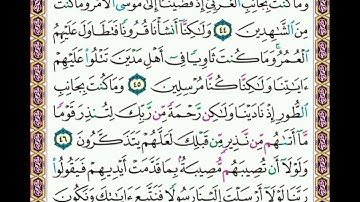 وَمَا كُنتَ بِجَانِبِ ٱلْغَرْبِىِّ إِذْ قَضَيْنَآ إِلَىٰ مُوسَى ٱلْأَمْرَ وَمَا كُنتَ
مِنَ ٱلشَّٰهِدِينَ ٤٤ وَلَٰكِنَّآ أَنشَأْنَا قُرُونًا فَتَطَاوَلَ عَلَيْهِمُ
ٱلْعُمُرُ ۚ وَمَا كُنتَ ثَاوِيًا فِىٓ أَهْلِ مَدْيَنَ تَتْلُوا۟ عَلَيْهِمْ
ءَايَٰتِنَا وَلَٰكِنَّا كُنَّا مُرْسِلِينَ ٤٥ وَمَا كُنتَ بِجَانِبِ
ٱلطُّورِ إِذْ نَادَيْنَا وَلَٰكِن رَّحْمَةً مِّن رَّبِّكَ لِتُنذِرَ قَوْمًا
مَّآ أَتَىٰهُم مِّن نَّذِيرٍ مِّن قَبْلِكَ لَعَلَّهُمْ يَتَذَكَّرُونَ ٤٦
وَلَوْلَآ أَن تُصِيبَهُم مُّصِيبَةٌۢ بِمَا قَدَّمَتْ أَيْدِيهِمْ فَيَقُولُوا۟
رَبَّنَا لَوْلَآ أَرْسَلْتَ إِلَيْنَا رَسُولًا فَنَتَّبِعَ ءَايَٰتِكَ وَنَكُونَ